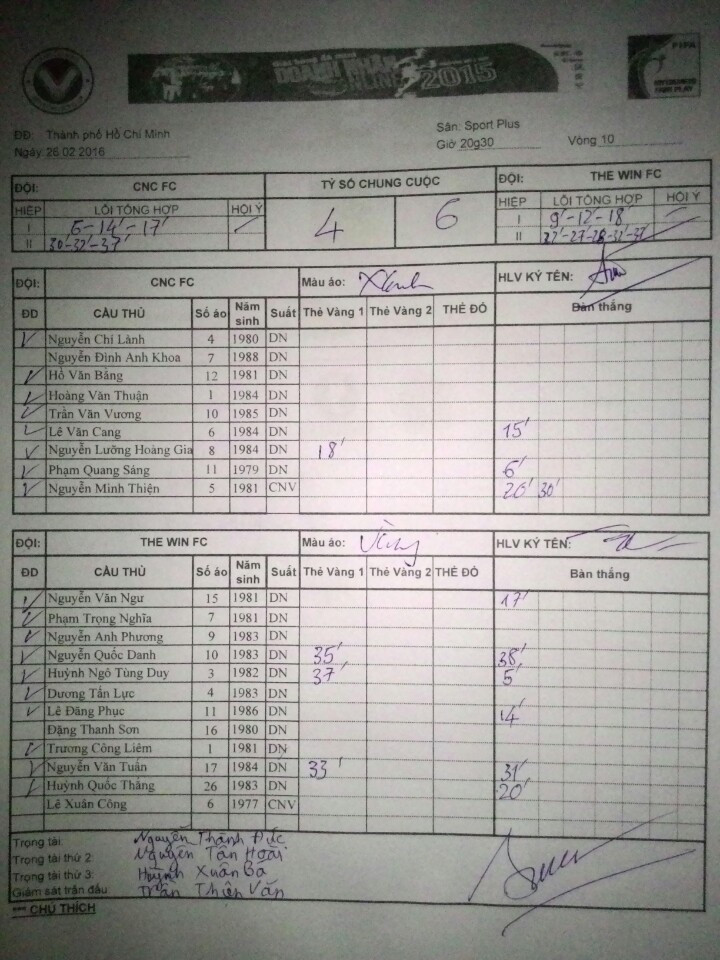 DOANH NHÂN
ONLINE 2015
FIFA
ĐĐ: Thành phố Hồ Chí Minh Sân: Sport Plus
Ngày 26 02 2016 Giờ 20g30 Vòng 10
ĐỘI: CNC FC TỶ SỐ CHUNG CUỘC ĐỘI: THE WIN FC
HIỆP LỖI TỔNG HỢP HỘI Ý 4 6 HIỆP LỖI TỔNG HỢP HỘI Ý
I 6-14'-17' I 9'-12-18'
II 30'-32'-37' II
ĐỘI: CNC FC Màu áo: Xanh HLV KÝ TÊN:
ĐD CẦU THỦ Số áo Năm sinh Suất Thẻ Vàng 1 Thẻ Vàng 2 THẺ ĐỎ Bàn thắng
Nguyễn Chí Lành 4 1980 DN
Nguyễn Đình Anh Khoa 7 1988 DN
Hồ Văn Bằng 12 1981 DN
Hoàng Văn Thuận 1 1984 DN
Trần Văn Vương 10 1985 DN
Lê Văn Cang 6 1984 DN 15'
Nguyễn Lưỡng Hoàng Gia 8 1984 DN 18'
Phạm Quang Sáng 11 1979 DN 6'
Nguyễn Minh Thiện 5 1981 CNV 20' 30'
ĐỘI: THE WIN FC Màu áo: Vàng HLV KÝ TÊN:
ĐD CẦU THỦ Số áo Năm sinh Suất Thẻ Vàng 1 Thẻ Vàng 2 THẺ ĐỎ Bàn thắng
Nguyễn Văn Ngư 15 1981 DN 17'
Phạm Trọng Nghĩa 7 1981 DN
Nguyễn Anh Phương 9 1983 DN
Nguyễn Quốc Danh 10 1983 DN 35' 38'
Huỳnh Ngô Tùng Duy 3 1982 DN 37' 5'
Dương Tấn Lực 4 1983 DN
Lê Đăng Phục 11 1986 DN 14'
Đặng Thanh Sơn 16 1980 DN
Trương Công Liêm 1 1981 DN
Nguyễn Văn Tuấn 17 1984 DN 33' 31'
Huỳnh Quốc Thắng 26 1983 DN 20'
Lê Xuân Công 6 1977 CNV
Trọng tài: Nguyễn Thành Đức
Trọng tài thứ 2: Nguyễn Tấn Hoài
Trọng tài thứ 3: Huỳnh Xuân Bá
Giám sát trận đấu: Trần Thiện Vấn
*** CHÚ THÍCH